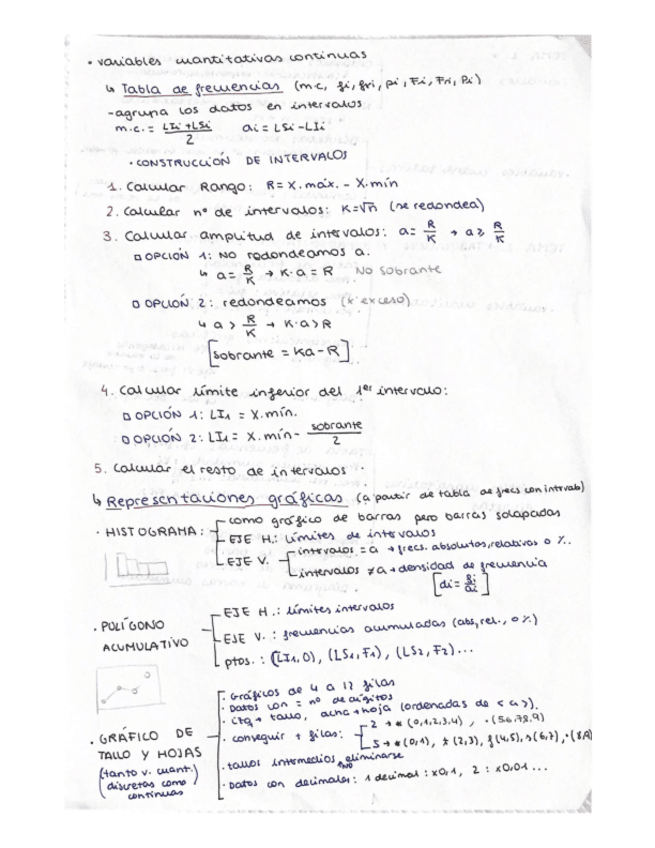 • variables cuantitativas continuas
↳ Tabla de frecuencias (m.c, fi, fri, pi, Fi, Fri, Pi)
- agrupa los datos en intervalos
m.c. = (LIi + LSi)/2   ai = LSi - LIi
• CONSTRUCCIÓN DE INTERVALOS
1. Calcular Rango: R = X.máx. - X.mín
2. Calcular nº de intervalos: K = √n (se redondea)
3. Calcular amplitud de intervalos: a = R/K → a ≥ R/K
□ OPCIÓN 1: NO redondeamos a.
↳ a = R/K → K·a = R   No sobrante
□ OPCIÓN 2: redondeamos (x exceso)
↳ a > R/K → K·a > R
[sobrante = Ka - R]
4. Calcular límite inferior del 1er intervalo:
□ OPCIÓN 1: LI1 = X.mín.
□ OPCIÓN 2: LI1 = X.mín - sobrante/2
5. Calcular el resto de intervalos
↳ Representaciones gráficas (a partir de tabla de frecs con intrvals)
• HISTOGRAMA:
como gráfico de barras pero barras solapadas
EJE H.: límites de intervalos
EJE V.
intervalos = a → frecs. absolutas, relativas o %.
intervalos ≠ a → densidad de frecuencia
[di = fi/ai]
• POLÍGONO ACUMULATIVO
EJE H.: límites intervalos
EJE V.: frecuencias acumuladas (abs, rel., o %)
ptos.: (LI1, 0), (LS1, F1), (LS2, F2)...
• GRÁFICO DE TALLO Y HOJAS
(tanto v. cuant. discretas como continuas)
• Gráficos de 4 a 12 filas
• Datos con = nº de dígitos
• Izq → tallo, dcha → hoja (ordenadas de < a >).
• conseguir + filas:
2 → * (0,1,2,3,4), · (5,6,7,8,9)
5 → * (0,1), t (2,3), f (4,5), s (6,7), · (8,9)
• tallos intermedios no eliminarse
• Datos con decimales: 1 decimal: x0,1, 2: x0,01...